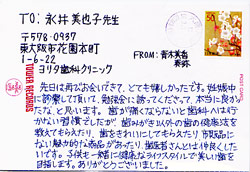 TO: 永井美也子先生
〒578-0937
東大阪市花園本町
1-6-22
ヨリタ歯科クリニック
FROM: 青木美香
TOWER RECORDS
POST CARD
50
先日は再びお会いできて、とても嬉しかったです。妊娠中
に診察して頂いて、勉強会に誘ってくださって、本当に良かっ
たな、と思います。歯が痛くならないと歯科へは行
かない習慣でしたが、歯みがき以外の歯の健康法を
教えてもらえたり、歯をきれいにしてもらえたり、市販品に
ない魅力的な商品があったり、歯医者さんとは仲良くした
いです。子供も一緒に健康なライフスタイルで美しい歯を
目指します。ありがとうございました。